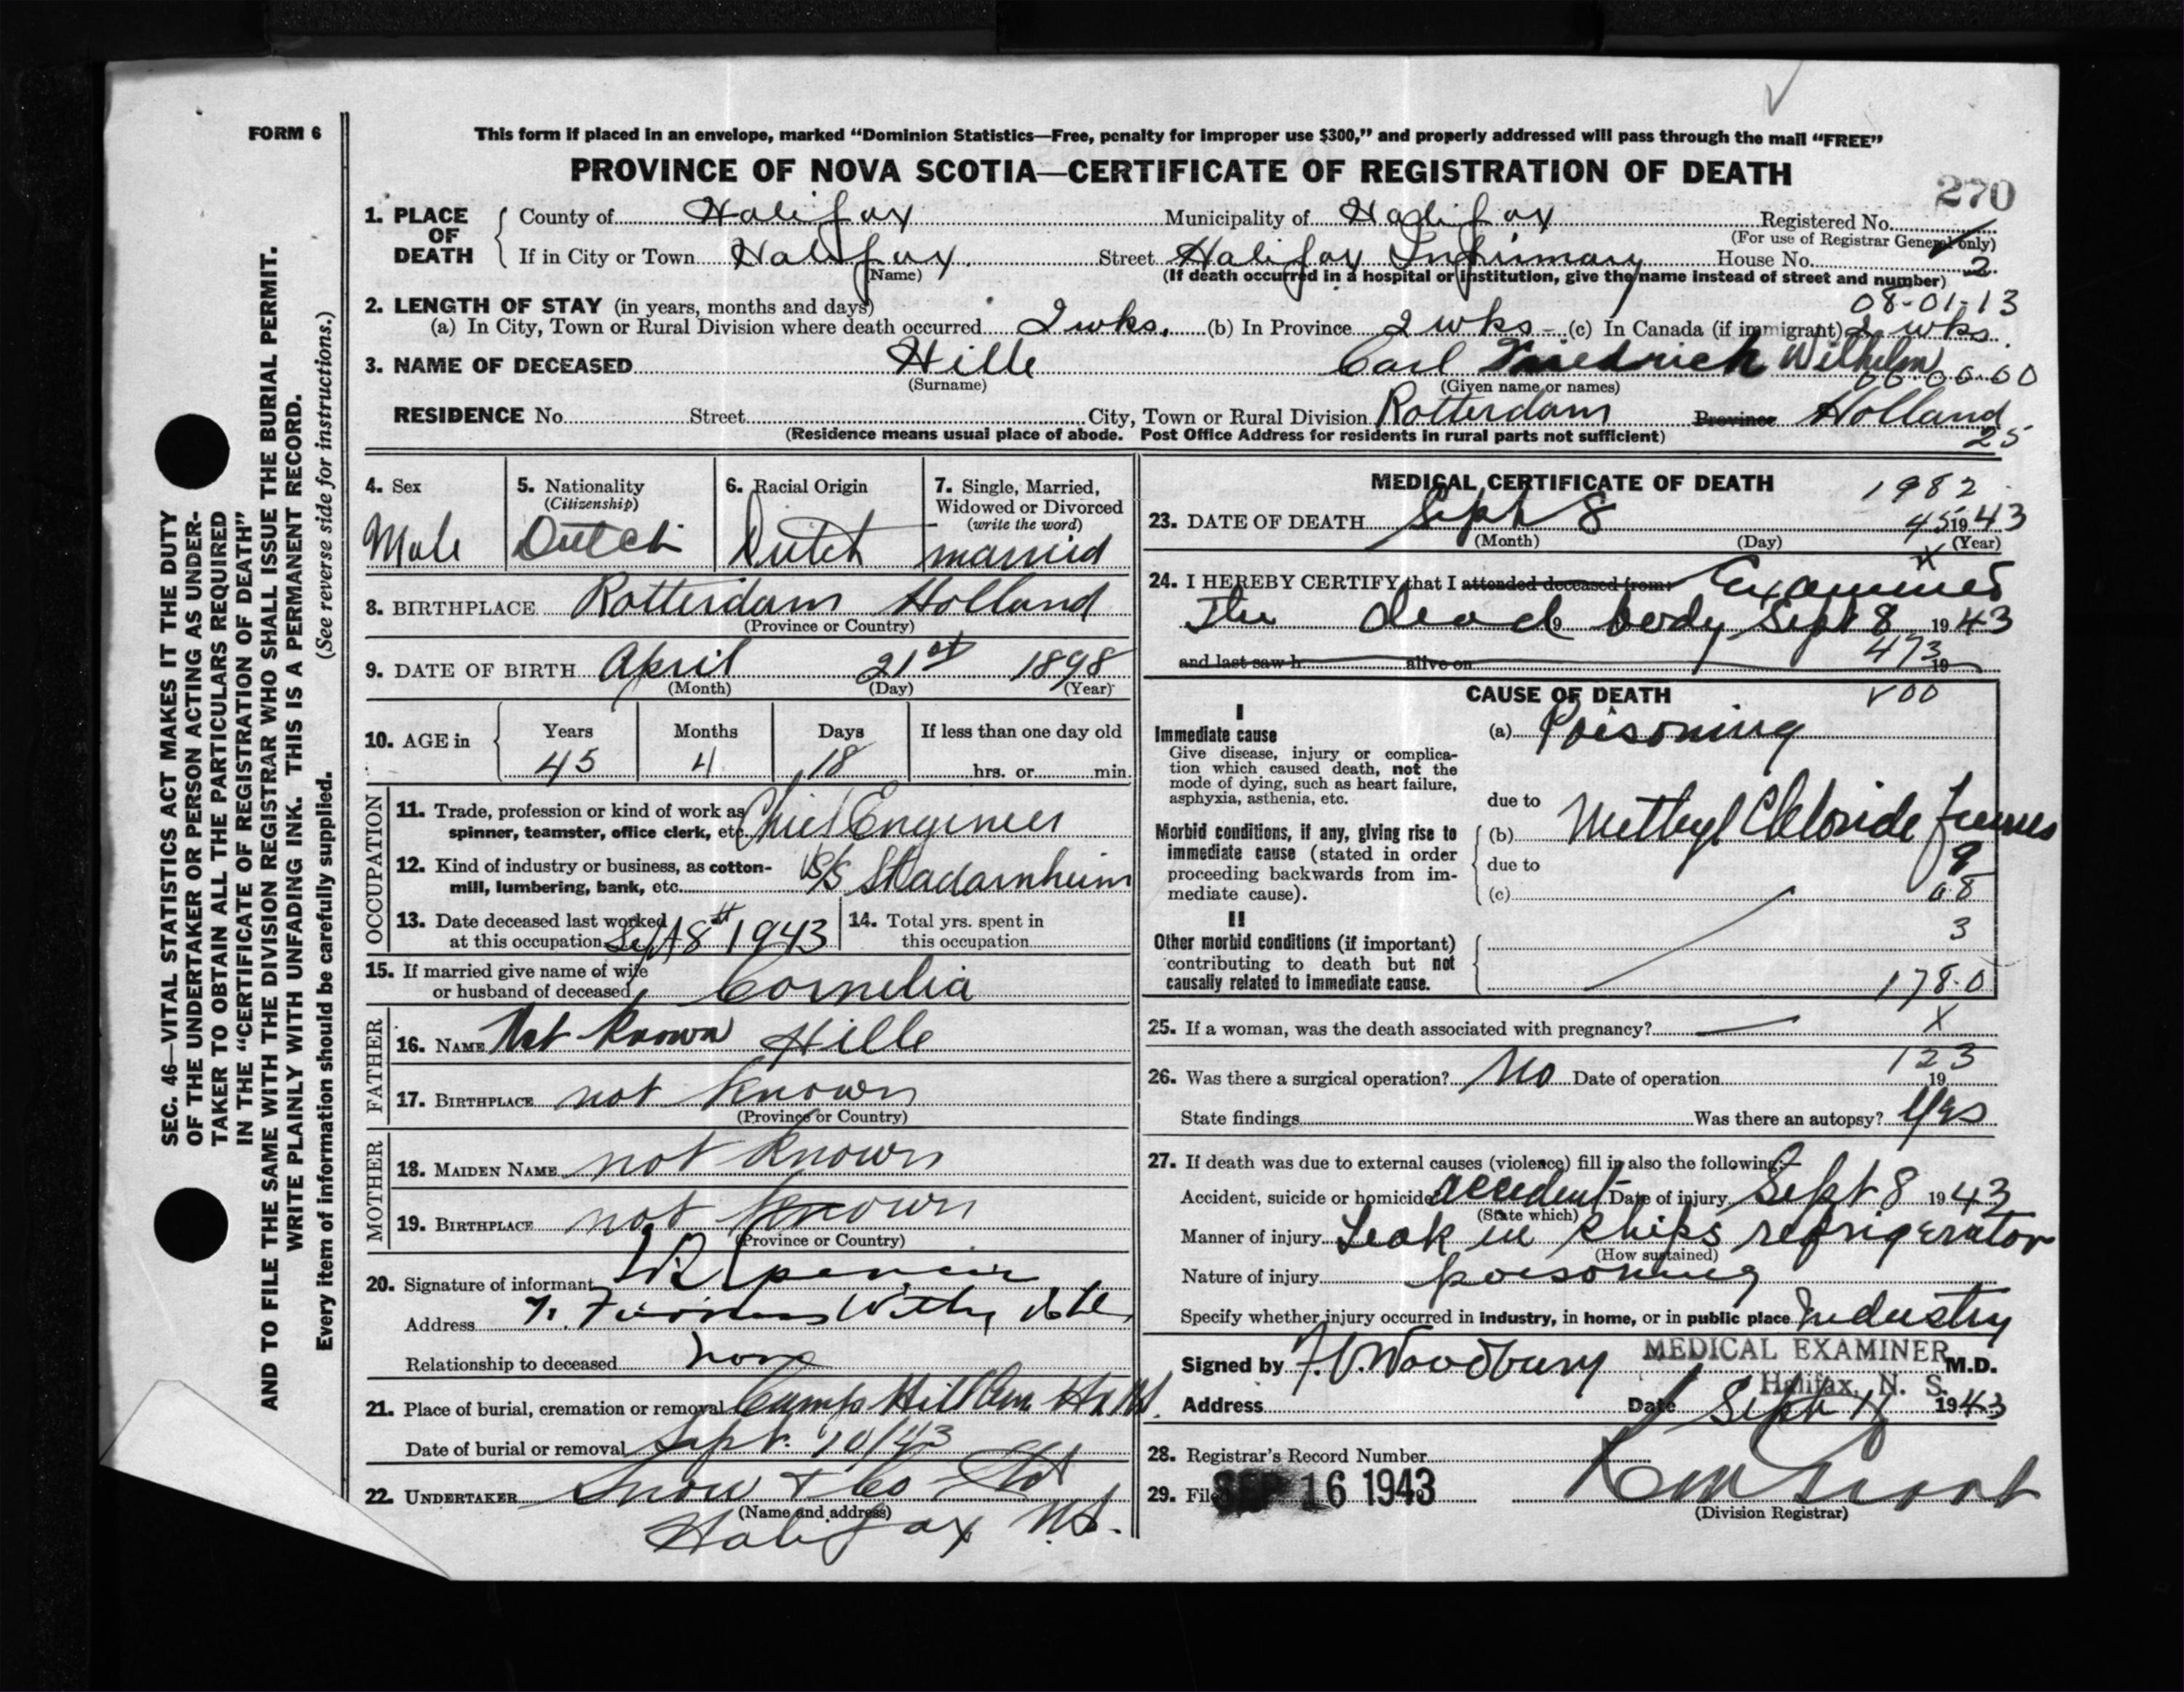 FORM 6
This form if placed in an envelope, marked “Dominion Statistics—Free, penalty for improper use $300,” and properly addressed will pass through the mail “FREE”
PROVINCE OF NOVA SCOTIA—CERTIFICATE OF REGISTRATION OF DEATH
270
1. PLACE OF DEATH County of Halifax Municipality of Halifax Registered No.
(For use of Registrar General only)
If in City or Town Halifax Street Halifax Infirmary House No. 2
(Name) (If death occurred in a hospital or institution, give the name instead of street and number)
08-01-13
2. LENGTH OF STAY (in years, months and days)
(a) In City, Town or Rural Division where death occurred 2 wks. (b) In Province 2 wks - (c) In Canada (if immigrant) 2 wks.
3. NAME OF DECEASED Hille Carl Friedrich Wilhelm
(Surname) (Given name or names) 00.00.00
RESIDENCE No. Street City, Town or Rural Division Rotterdam Province Holland
(Residence means usual place of abode. Post Office Address for residents in rural parts not sufficient) 25
4. Sex 5. Nationality 6. Racial Origin 7. Single, Married,
(Citizenship) Widowed or Divorced
(write the word)
Male Dutch Dutch married
8. BIRTHPLACE Rotterdam Holland
(Province or Country)
9. DATE OF BIRTH April 21st 1898
(Month) (Day) (Year)
10. AGE in Years Months Days If less than one day old
45 4 18 hrs. or min.
OCCUPATION
11. Trade, profession or kind of work as Chief Engineer
spinner, teamster, office clerk, etc.
12. Kind of industry or business, as cotton-
mill, lumbering, bank, etc. S/S
13. Date deceased last worked
at this occupation Sept 8th 1943
14. Total yrs. spent in
this occupation
15. If married give name of wife
or husband of deceased Cornelia
FATHER
16. NAME Not Known Hille
17. BIRTHPLACE not known
(Province or Country)
MOTHER
18. MAIDEN NAME not known
19. BIRTHPLACE not known
(Province or Country)
20. Signature of informant
Address Furness Withy
Relationship to deceased none
21. Place of burial, cremation or removal Camp Hill Cem
Date of burial or removal Sept. 10/43
22. UNDERTAKER Snow & Co Ltd
(Name and address)
Halifax N.S.
MEDICAL CERTIFICATE OF DEATH 1982
23. DATE OF DEATH Sept 8 45 1943
(Month) (Day) (Year)
X
24. I HEREBY CERTIFY that I attended deceased from: Examined
The dead 9 body Sept 8 1943
and last saw h alive on 473 19
CAUSE OF DEATH
I
Immediate cause
Give disease, injury or complica-
tion which caused death, not the
mode of dying, such as heart failure,
asphyxia, asthenia, etc.
(a) Poisoning
due to
Morbid conditions, if any, giving rise to
immediate cause (stated in order
proceeding backwards from im-
mediate cause).
(b) Methyl Chloride fumes
due to 9
(c) 08
II
Other morbid conditions (if important)
contributing to death but not
causally related to immediate cause.
3
178.0
25. If a woman, was the death associated with pregnancy? — X
123
26. Was there a surgical operation? No Date of operation 19
State findings Was there an autopsy? Yes
27. If death was due to external causes (violence) fill in also the following:—
Accident, suicide or homicide accident Date of injury Sept 8 1943
(State which)
Manner of injury Leak in ships refrigerator
(How sustained)
Nature of injury poisoning
Specify whether injury occurred in industry, in home, or in public place Industry
Signed by F.V. Woodbury MEDICAL EXAMINER M.D.
Halifax, N. S.
Address Date Sept 11 1943
28. Registrar's Record Number
29. Filed SEP 16 1943
(Division Registrar)
SEC. 46—VITAL STATISTICS ACT MAKES IT THE DUTY
OF THE UNDERTAKER OR PERSON ACTING AS UNDER-
TAKER TO OBTAIN ALL THE PARTICULARS REQUIRED
IN THE “CERTIFICATE OF REGISTRATION OF DEATH”
AND TO FILE THE SAME WITH THE DIVISION REGISTRAR WHO SHALL ISSUE THE BURIAL PERMIT.
WRITE PLAINLY WITH UNFADING INK. THIS IS A PERMANENT RECORD.
Every item of information should be carefully supplied. (See reverse side for instructions.)